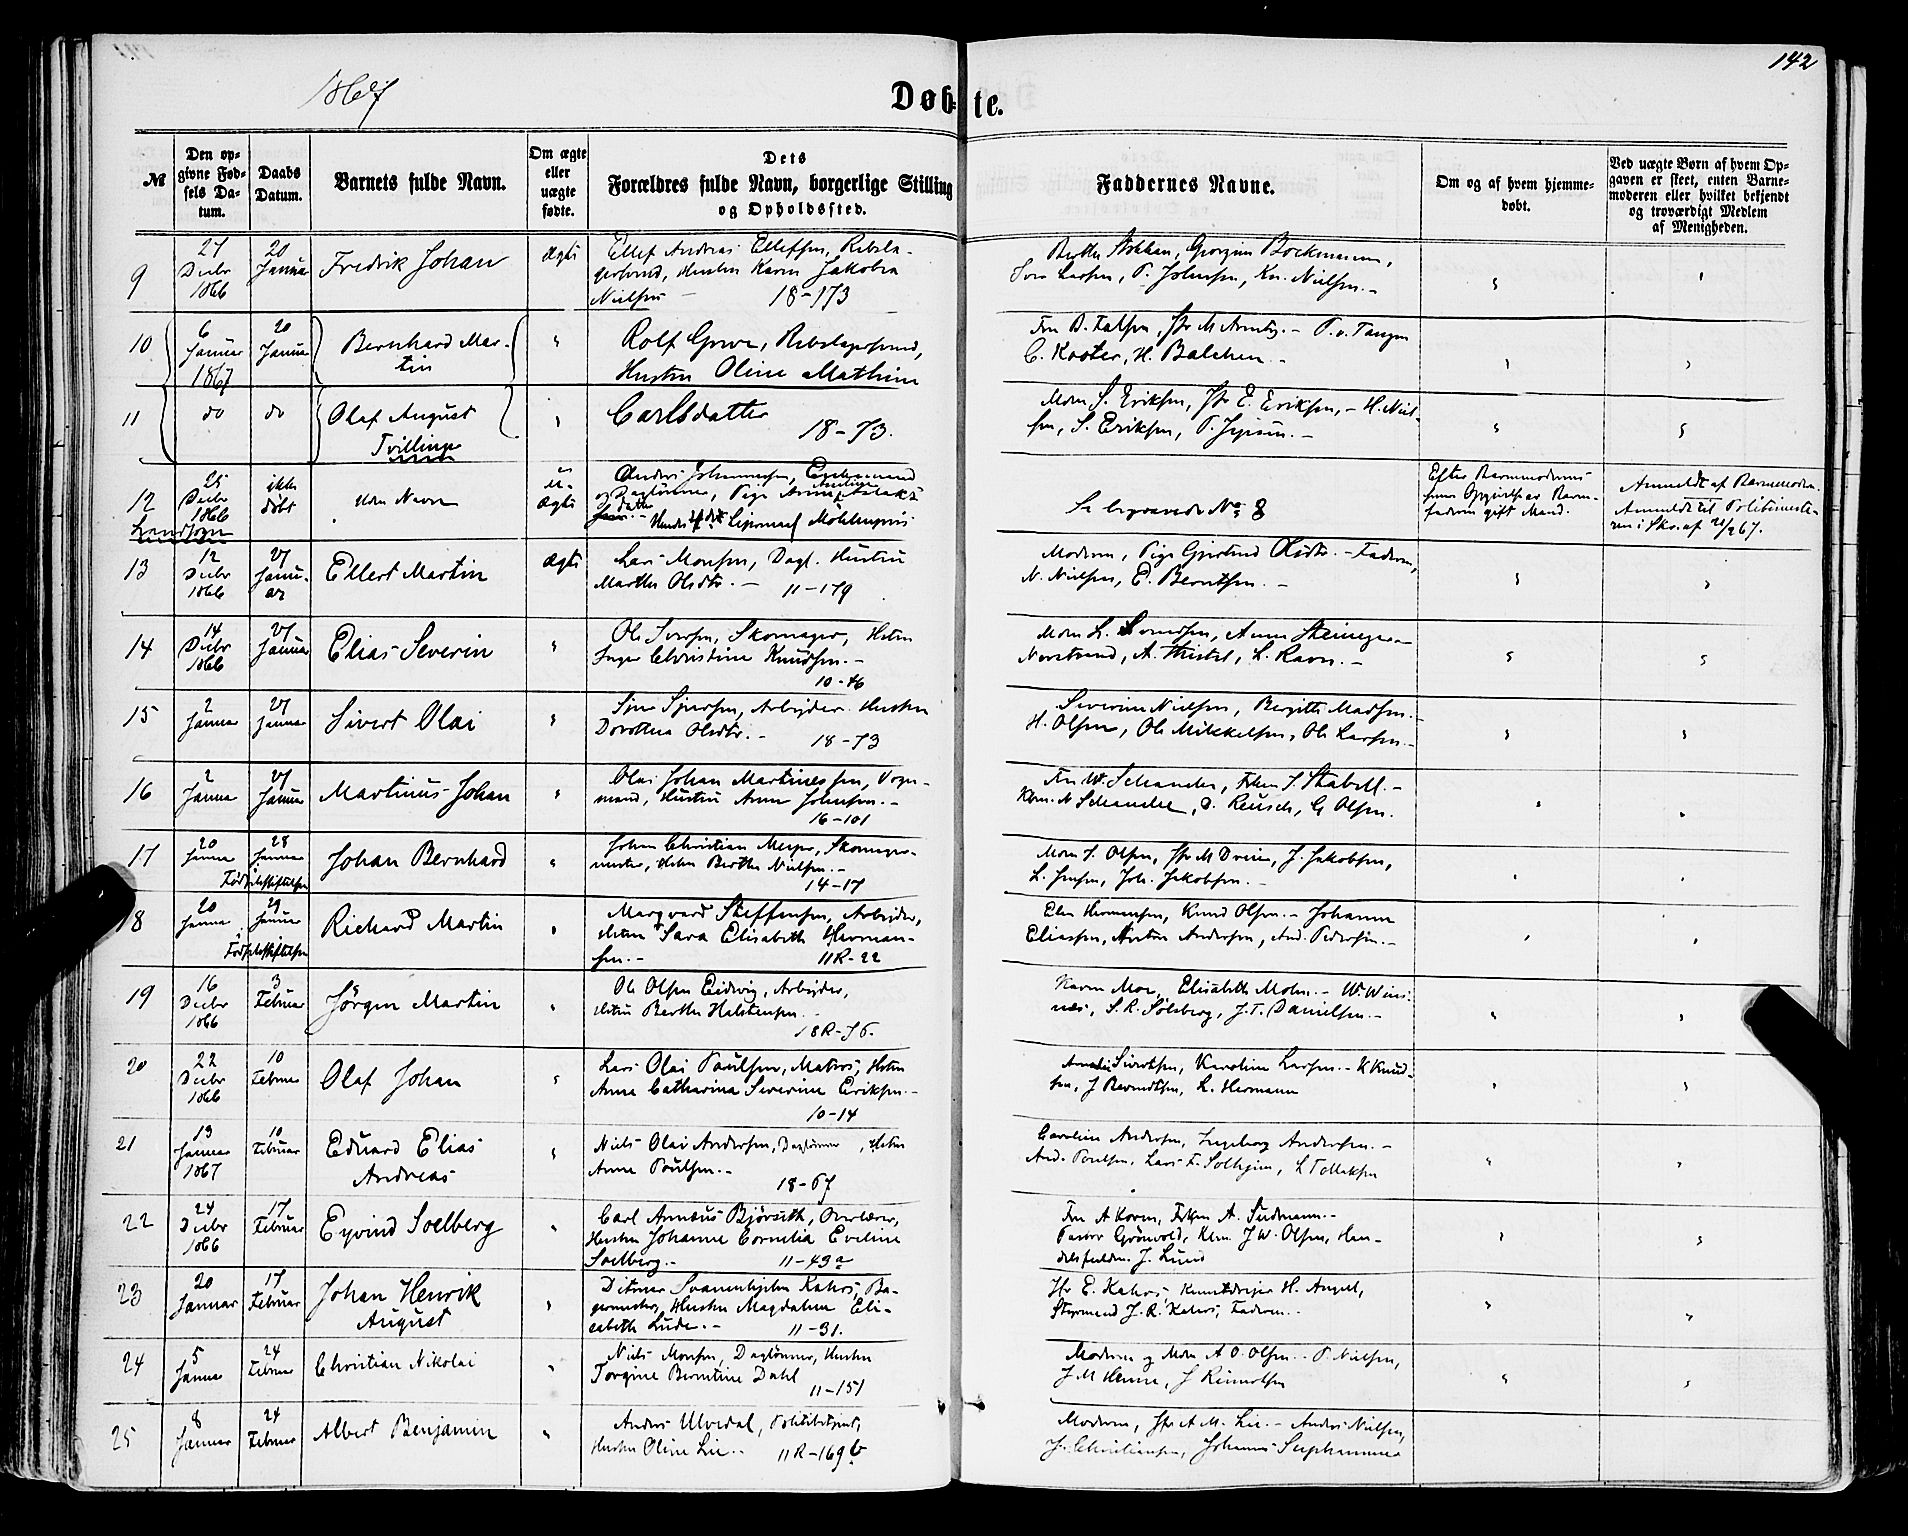 142
1867
Døbte.
№
Den opgivne Fødsels Datum.
Daabs Datum.
Barnets fulde Navn.
Om ægte eller uægte fødte.
Dets
Forældres fulde Navn, borgerlige Stilling
og Opholdssted.
Faddernes Navne.
Om og af hvem hjemmedøbt.
Ved uægte Børn af hvem Opgaven er skeet, enten Barnemoderen eller hvilket bekjendt og troværdigt Medlem af Menigheden.
9 27 Decbr 1866 20 Januar Fredrik Johan Ægte Ellef Andreas Elleffsen, Rebslagersvend, Hustru Karen Jakobea Nielsen 18-173
Lars Larsen, P. Johnsen, Kn. Nielsen.-
10 6 Januar 1867 20 Januar Bernhard Martin " Rolf Greve, Rebslagersvend, Hustru Oline Mathine
C. Koster, H. Balchen.-
11 do do Olaf August Tvillinge " Carlsdatter 18-73.
Mdm S. Eriksen, Jfr E. Eriksen,- H. Nielsen, S. Eriksen, P. Jepsen.-
12 25 Decbr 1866 ikke døbt uden Navn u-Ægte Anders Johannesen, og Daglønner, Pige Anne Aslaksdatter
Se begravede No 8
Efter Barnemoderens Opgivelse Barnefaderen gift Mand.
Anmeldt af Barnemoderen.
Anmeldt til Politimesteren i Skr. af 21/2 67.
Landsogn
13 12 Decbr 1866 27 Januar Ellert Martin Ægte Lars Monsen, Dagl. Hustru Marthe Olsdtr.- 11-179
Moderen, Pige Gjertrud Olsdtr.- Faderen, N. Nielsen, E. Berntsen.-
14 14 Decbr 1866 27 Januar Elias Severin " Ole Iversen, Skomager, Hstru Inger Christine Knudsen.- 10-46
L. Ravn.-
15 2 Januar 27 Januar Sivert Olai " Arbeider. Hustru Dorothea Olsdtr.- 18-73
Severine Nielsen, Birgitte Madsen.- H. Olsen, Ole Mikkelsen, Ole Larsen.-
16 2 Januar 27 Januar Martinus Johan " Olai Johan Martinessen, Vognmand, Hustru Anne Johnsen.- 16-101
D. Reusch, G. Olsen.
17 20 Januar 28 Januar Fødselsstiftelsen Johan Bernhard " Johan Christian Meyer, Skomagermester, Hstru Berthe Nielsen.- 14-17
Mdm S. Olsen, J. Jakobsen, L. Jensen, Joh. Jakobsen.-
18 20 Januar 29 Januar Fødselsstiftelsen Richard Martin " Marqvard Steffensen, Arbeider, Hstru Sara Elisabeth Hermansen.- 11R-22
Elen Hermansen, Knud Olsen.- Johanne Eliassen, Anton Andersen, And. Pedersen.-
19 16 Decbr 1866 3 Februar Jörgen Martin " Ole Olsen Eidsvig, Arbeider, Hstru Berthe Halstensen.- 18R-76.
Karen Moe, Elisabeth Mohn.- S.R. Solberg, J.T. Danielsen.-
20 22 Decbr 1866 10 Februar Olaf Johan " Lars Olai Poulsen, Matros, Hstru Anne Catharina Severine Eriksen.- 10-14
Amalie Sivertsen, Karoline Larsen.- K Knudsen, J Berndtsen, L. Hermann
21 13 Januar 1867 10 Februar Edvard Elias Andreas " Niels Olai Andersen, Daglønner, Hstru Anne Poulsen.- 18-67
Caroline Andersen, Ingeborg Andersen.- And. Poulsen, Lars F. Solheim, L Tollaksen
22 24 Decbr 1866 17 Februar Eyvind Soelberg " Carl Annæus Bjørseth, Overlærer, Hustru Johanne Cornelia Eveline Soelberg.- 11-43a
Fru A Koren, Frkn A. Sudmann.- Pastor Grönvold, Kbm. J W. Olsen, Handelsfuldm. J. Lund
23 20 Januar 17 Februar Johan Henrik August " Ditmar Svanenhjelm Kahrs, Bagermester, Hustru Magdalena Elisabeth Lude.- 11-31.
Hr E. Kahrs, Kunstdreier H. Angel, Styrmand J. R. Kahrs, Faderen.-
24 5 Januar 24 Februar Christian Nikolai " Niels Monsen, Daglønner, Hustru Torgine Berntine Dahl 11-151
Moderen og Mdm A O. Olsen.- P. Nielsen,
25 8 Januar 24 Februar Albert Benjamin " Anders Ulvedal, Politibetjent, Hustru Oline Lie.- 11R-169b
Moderen, Jfr A M. Lie.- Anders Nielsen, J. Christiansen, Johannes